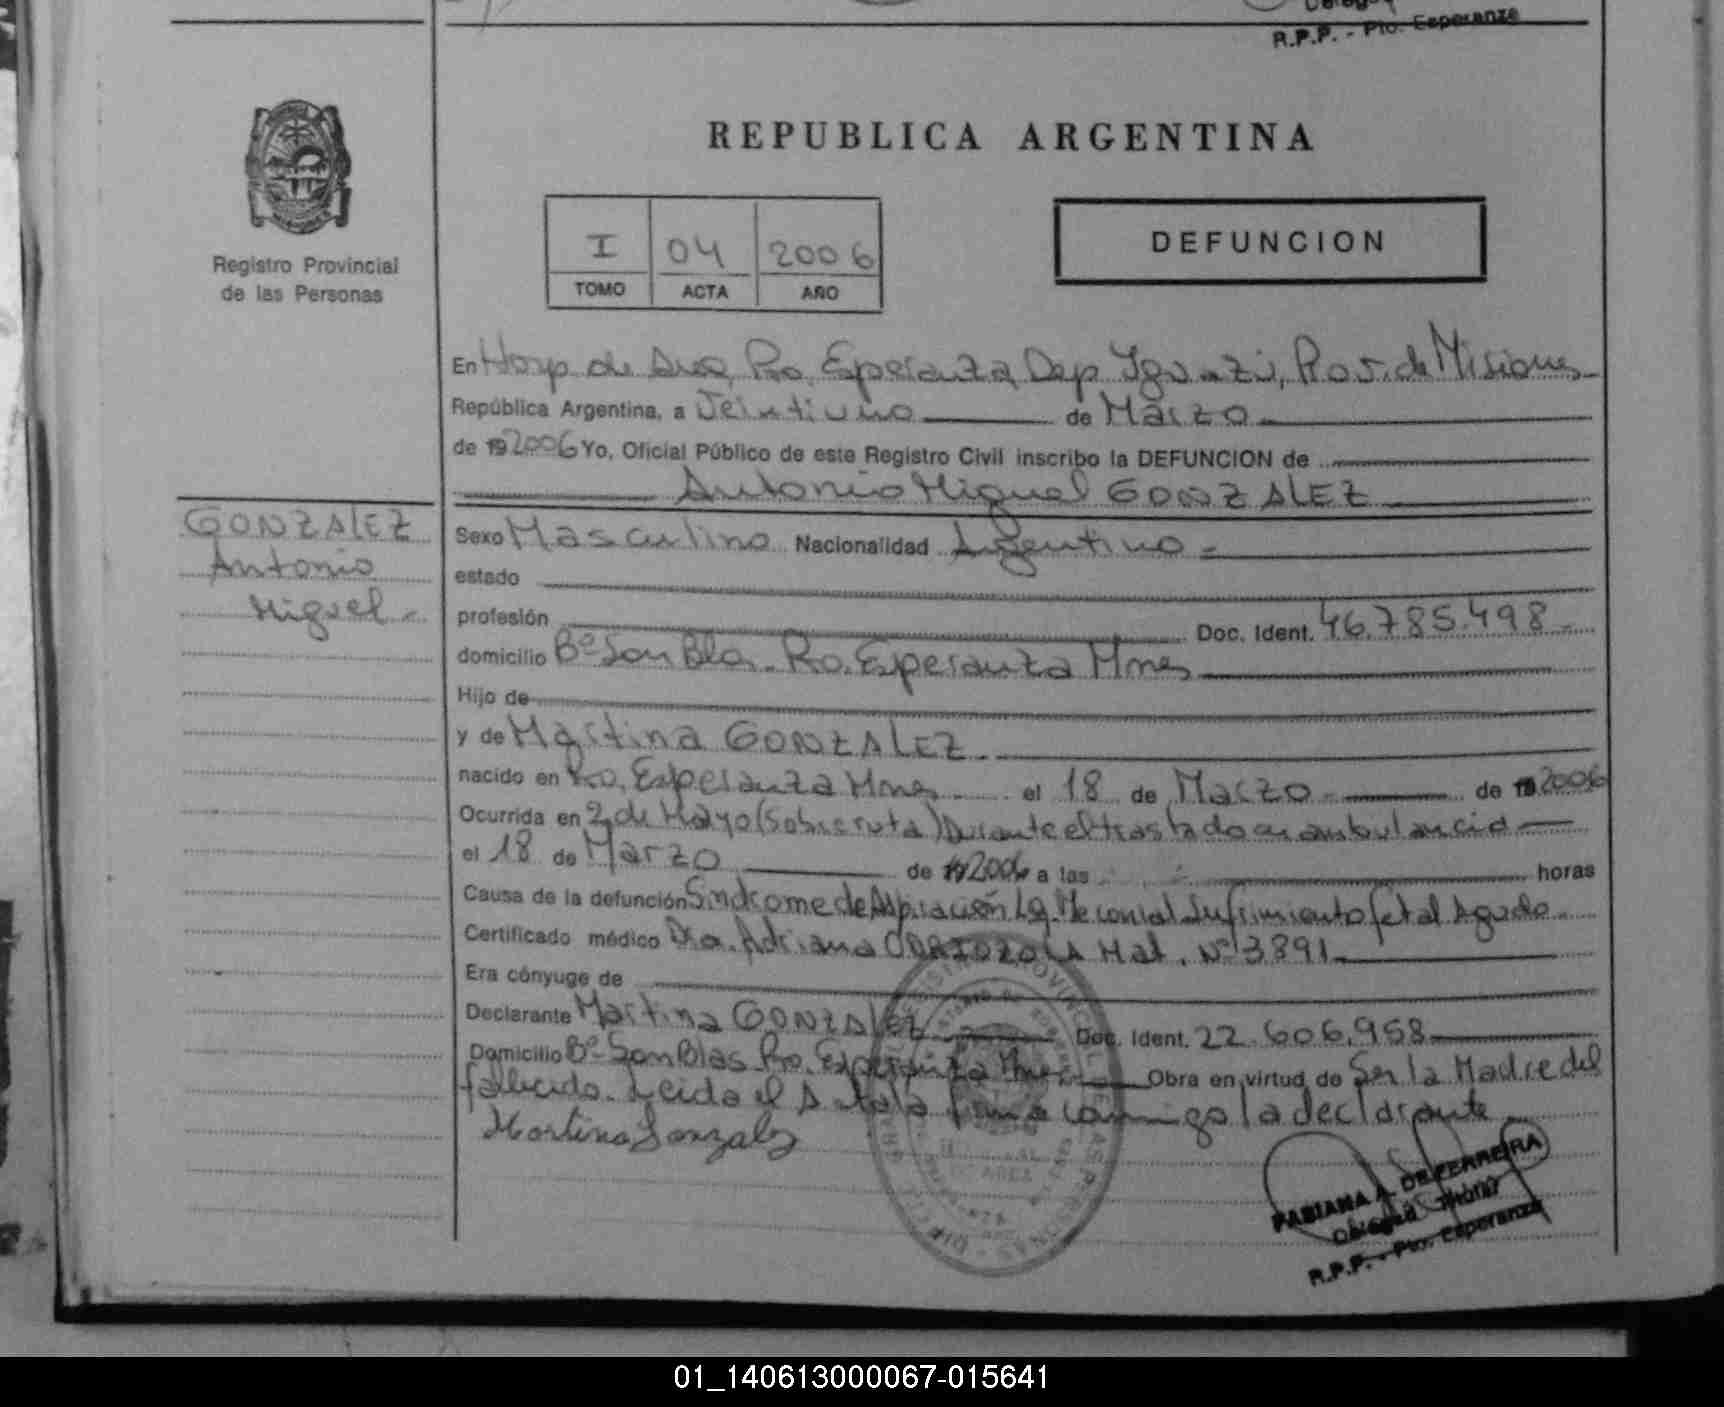 R.P.P. - Pto. Esperanza
REPUBLICA ARGENTINA
Registro Provincial
de las Personas
I 04 2006
TOMO ACTA AÑO
DEFUNCION
En Hosp. de Area, Pto. Esperanza, Dep. Iguazú, Prov. de Misiones
República Argentina, a Veintiuno de Marzo
de 19 2006 Yo, Oficial Público de este Registro Civil inscribo la DEFUNCION de
Antonio Miguel GONZALEZ
GONZALEZ
Antonio
Miguel
Sexo Masculino Nacionalidad Argentino
estado
profesión Doc. Ident. 46.785.498
domicilio Bº San Blas. Pto. Esperanza Mnes
Hijo de
y de Martina GONZALEZ
nacido en Pto. Esperanza Mnes el 18 de Marzo de 19 2006
Ocurrida en 2 de Mayo (sobre ruta) Durante el traslado en ambulancia
el 18 de Marzo de 19 2006 a las horas
Causa de la defunción Sindrome de Aspiración Lq. Meconial Sufrimiento fetal Agudo
Certificado médico Dra. Adriana Mat. Nº 3891
Era cónyuge de
Declarante Martina GONZALEZ Doc. Ident. 22.606.958
Domicilio Bº San Blas Pto. Esperanza Mnes Obra en virtud de Ser la Madre del
fallecido. Leida el Acta la firma conmigo la declarante
Martina Gonzalez
FABIANA A. DE FERREIRA
Delegada Titular
R.P.P. - Pto. Esperanza
01_140613000067-015641